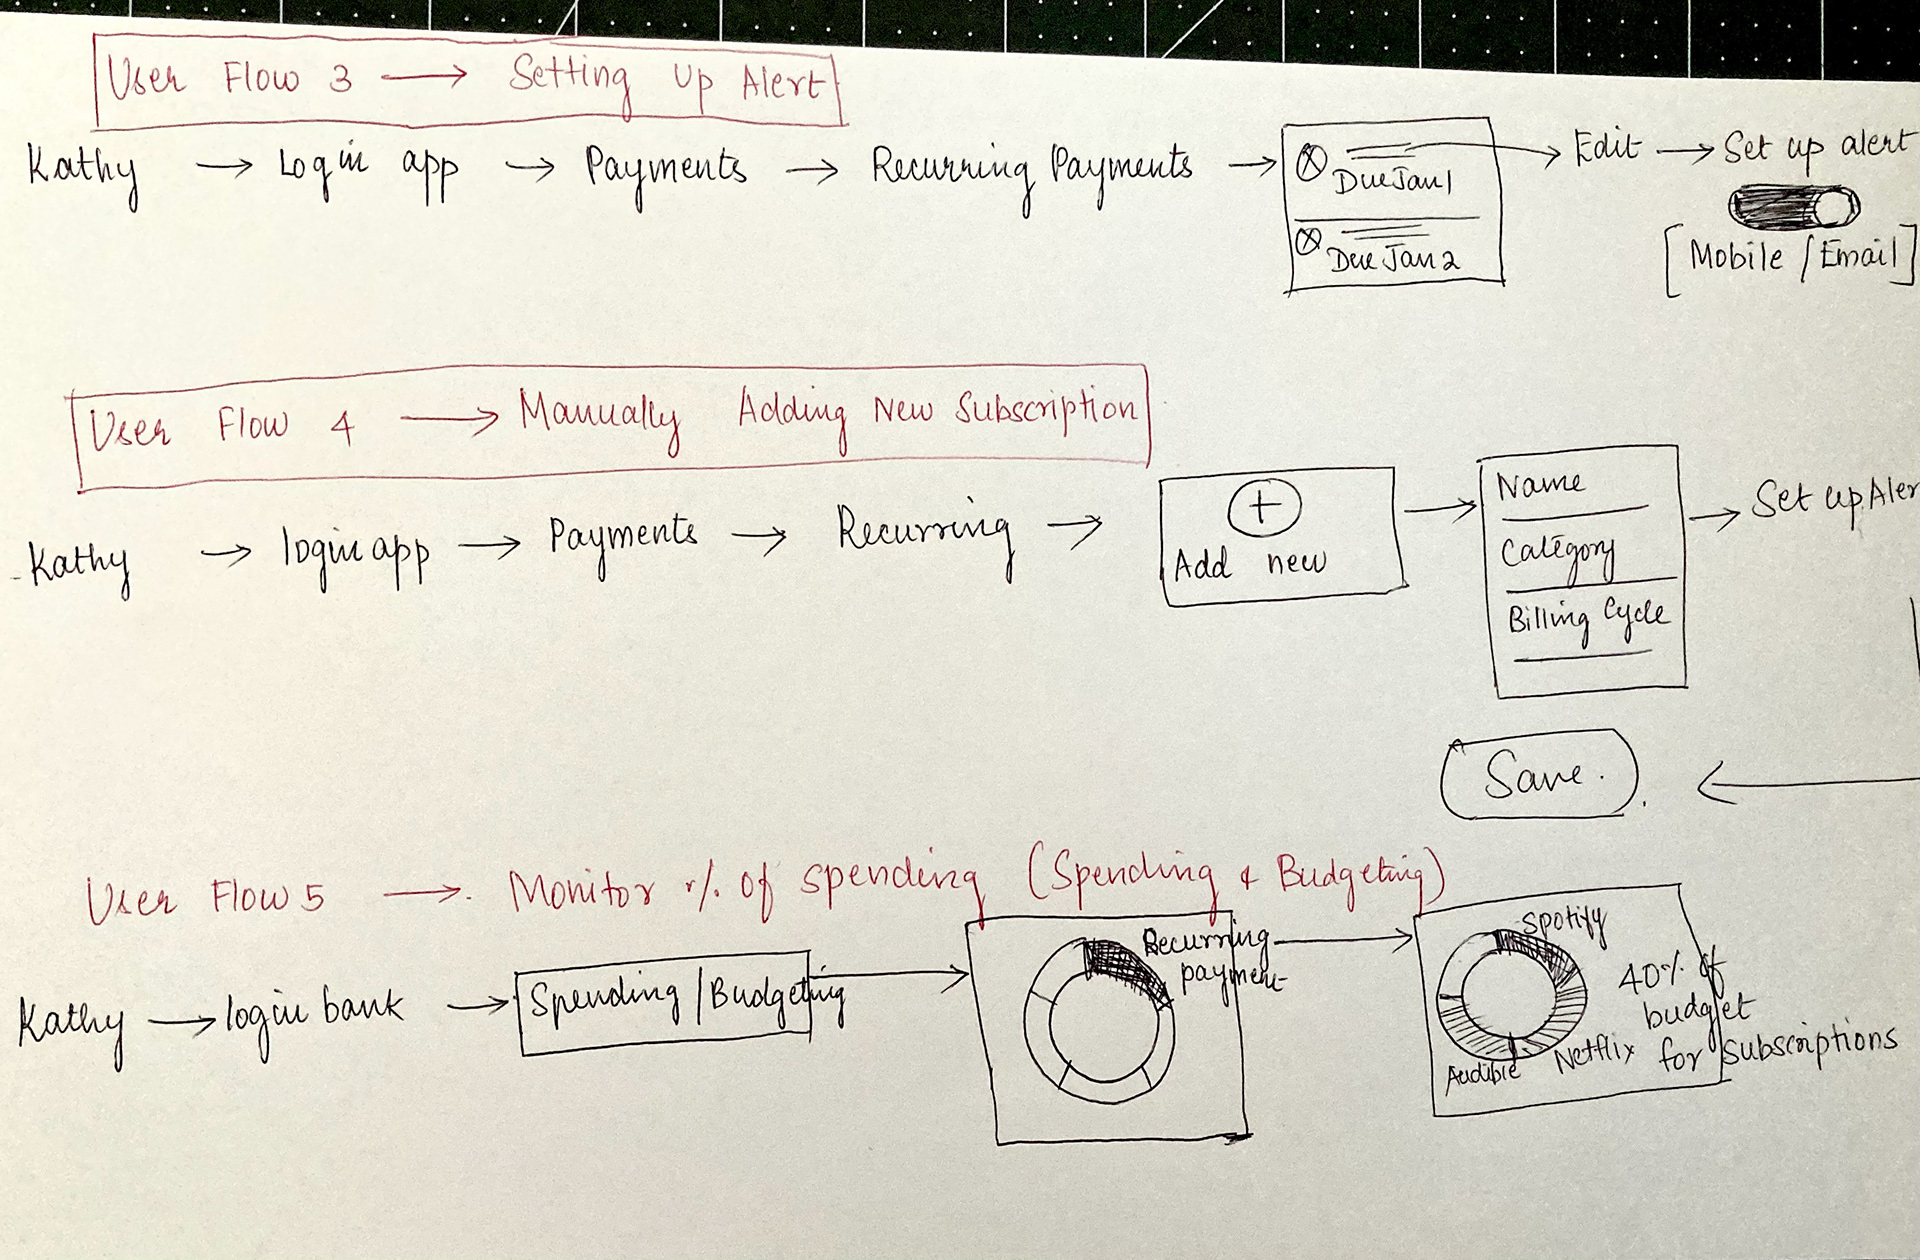 User Flow 3 → Setting Up Alert
Kathy → Login app → Payments → Recurring Payments → Edit → Set up alert
Due Jan 1
Due Jan 2
[Mobile / Email]
User Flow 4 → Manually Adding New Subscription
Kathy → login app → Payments → Recurring →
+
Add new
Name
Category
Billing Cycle
→ Set up Aler
Save.
User Flow 5 → Monitor % of spending (Spending & Budgeting)
Kathy → login bank → Spending / Budgeting
Recurring
payment
Spotify
Netflix
Audible
40% of
budget
for subscriptions